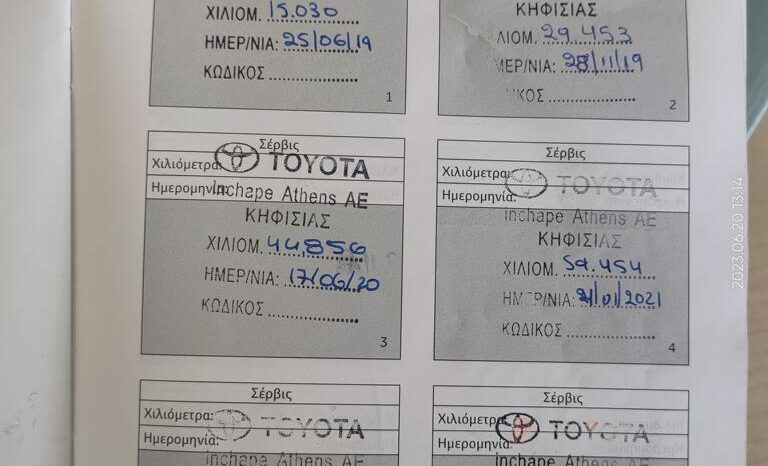 ΧΙΛΙΟΜ. 15.030
ΗΜΕΡ/ΝΙΑ: 25/06/19
ΚΩΔΙΚΟΣ
1
ΚΗΦΙΣΙΑΣ
ΛΙΟΜ. 29.453
ΜΕΡ/ΝΙΑ: 28/11/19
ΚΟΣ
2
Σέρβις
Χιλιόμετρα:
TOYOTA
Ημερομηνία:
Inchape Athens AE
ΚΗΦΙΣΙΑΣ
ΧΙΛΙΟΜ. 44.856
ΗΜΕΡ/ΝΙΑ: 17/06/20
ΚΩΔΙΚΟΣ
3
Σέρβις
Χιλιόμετρα:
TOYOTA
Ημερομηνία:
Inchape Athens AE
ΚΗΦΙΣΙΑΣ
ΧΙΛΙΟΜ. 59.454
ΗΜΕΡ/ΝΙΑ: 21/01/2021
ΚΩΔΙΚΟΣ
4
Σέρβις
Χιλιόμετρα:
TOYOTA
Ημερομηνία:
Inchape Athens AE
Σέρβις
Χιλιόμετρα:
TOYOTA
Ημερομηνία:
Inchape Athens AE
2023.06.20 13:14